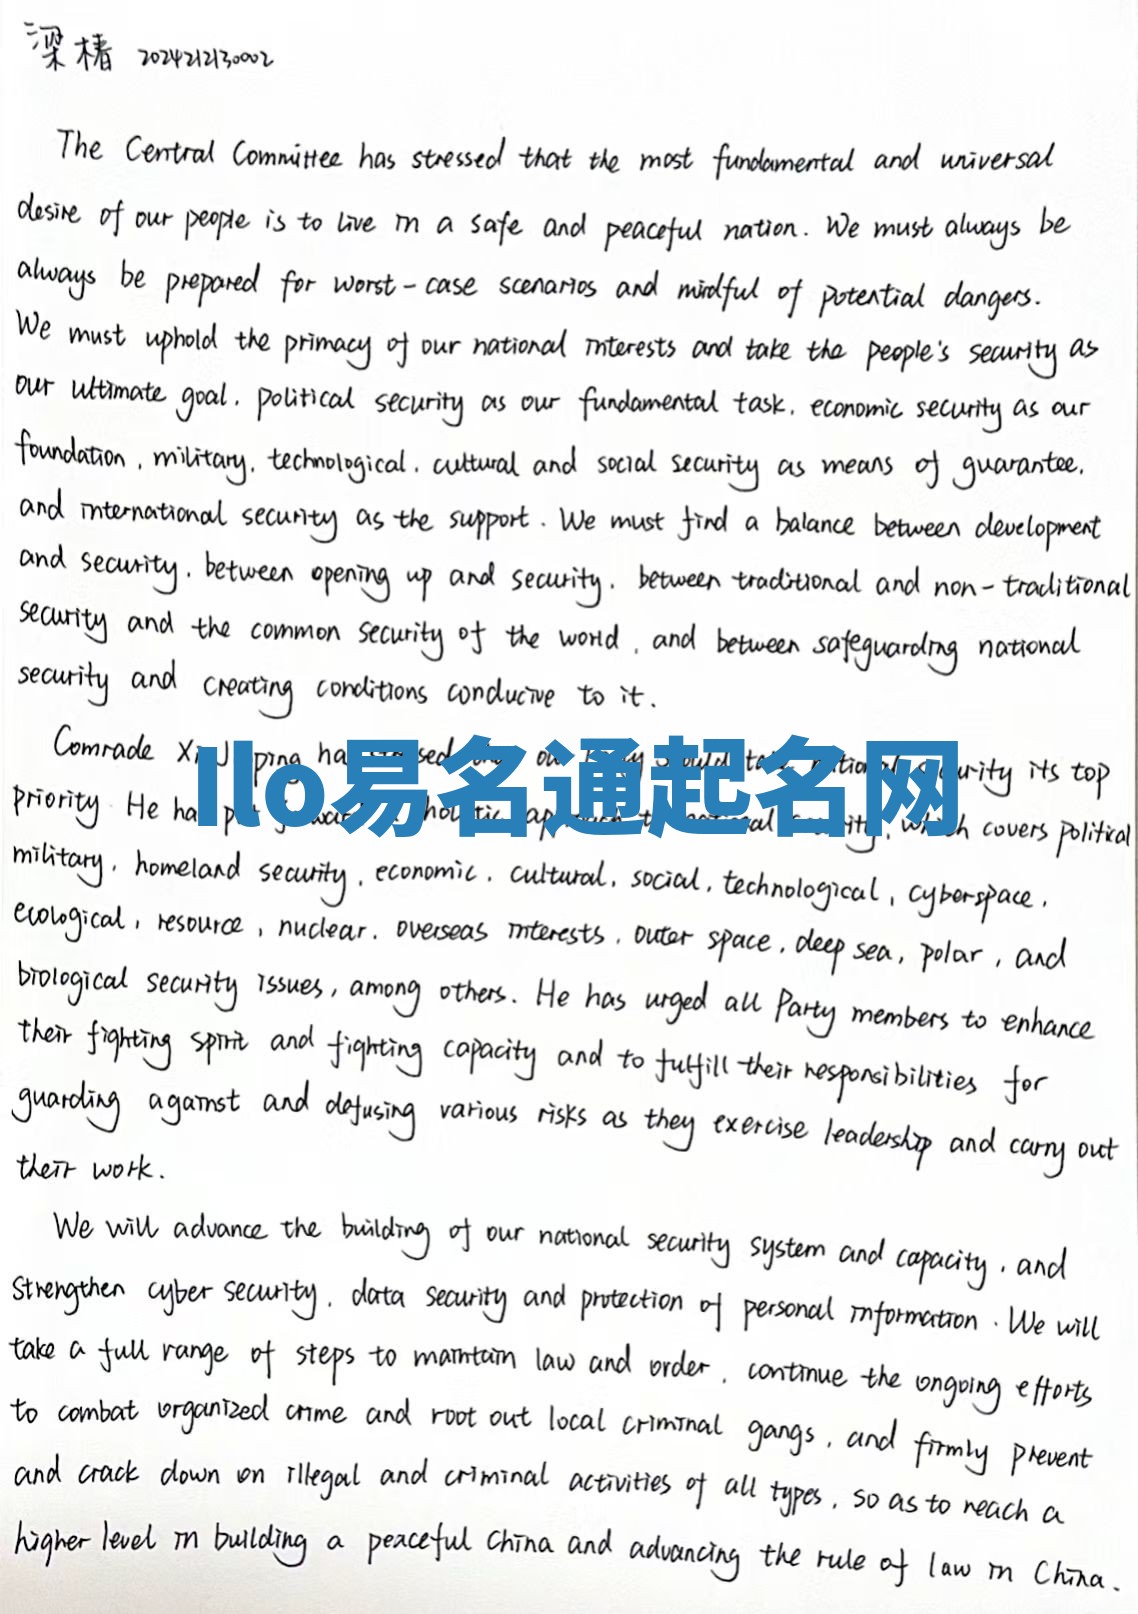 梁椿 2024212130002
The Central Committee has stressed that the most fundamental and universal
desire of our people is to live in a safe and peaceful nation. We must always be
always be prepared for worst-case scenarios and mindful of potential dangers.
We must uphold the primacy of our national interests and take the people's security as
our ultimate goal, political security as our fundamental task, economic security as our
foundation, military, technological, cultural and social security as means of guarantee,
and international security as the support. We must find a balance between development
and security, between opening up and security, between traditional and non-traditional
security and the common security of the world, and between safeguarding national
security and creating conditions conducive to it.
Comrade Xi Jinping has its top
Ilo易名通起名网
priority. He has which covers political
military, homeland security, economic, cultural, social, technological, cyberspace,
ecological, resource, nuclear, overseas interests, outer space, deep sea, polar, and
biological security issues, among others. He has urged all Party members to enhance
their fighting spirit and fighting capacity and to fulfill their responsibilities for
guarding against and defusing various risks as they exercise leadership and carry out
their work.
We will advance the building of our national security system and capacity, and
strengthen cyber security, data security and protection of personal information. We will
take a full range of steps to maintain law and order, continue the ongoing efforts
to combat organized crime and root out local criminal gangs, and firmly prevent
and crack down on illegal and criminal activities of all types, so as to reach a
higher level in building a peaceful China and advancing the rule of law in China.